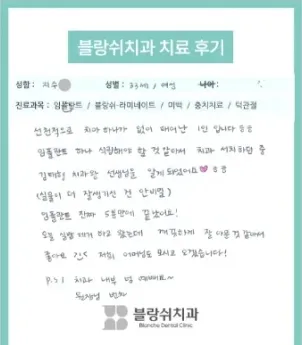 블랑쉬치과 치료 후기
성함 : 지수
성별 : 33세 / 여성
나이 :
진료과목 : 임플란트 / 블랑쉬-라미네이트 / 미백 / 충치치료 / 턱관절
선천적으로 치아 하나가 없이 태어난 1인 입니다 ㅎㅎ
임플란트 하나 식립해야 할 것 같아서 치과 서치하던 중
치과한 선생님을 알게 되었어요 ♥ ㅎㅎ
(실물이 더 잘생기신 건 안비밀)
임플란트 진짜 5분만에 끝났어요!
오늘 실밥 제거 하고 왔는데 깨끗하게 잘 아문 것 같아서
좋아요 저희 어머님도 모시고 오겠습니다!
P.S) 치과 내부 넘 예뻐요~
블랑쉬치과
Blanche Dental Clinic